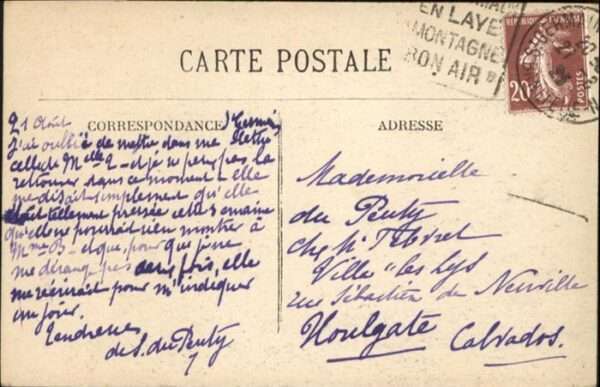 EN LAYE
MONTAGNE
BON AIR"
RÉPUBLIQUE FRANÇAISE
20c
CARTE POSTALE
CORRESPONDANCE
ADRESSE
21 Août
J'ai oublié de mettre dans ma lettre
celle de Melle L- et je ne peux pas la
retrouver dans ce moment - elle
me disait simplement qu'elle
était tellement pressée cette semaine
qu'elle ne pourrait rien montrer à
Mme B- et que, pour que je ne
me dérange pas sans fois, elle
me récrirait pour m'indiquer
un jour.
Tendresses
de S. du Peuty
Mademoiselle
du Peuty
chez Mr
Villa "les Lys
rue Sébastien de Neuville
Houlgate
Calvados.